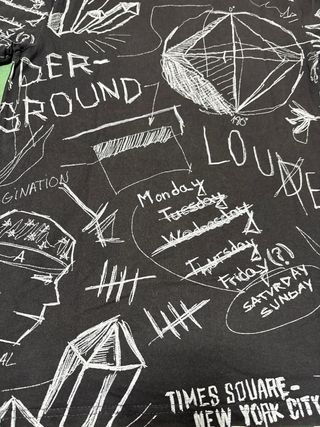 DER-
GROUND
90°
LOUDE
GINATION
Monday
Tuesday
Wednesday
Thursday
Friday(?)
SATURDAY
SUNDAY
A
AL
TIMES SQUARE-
NEW YORK CITY